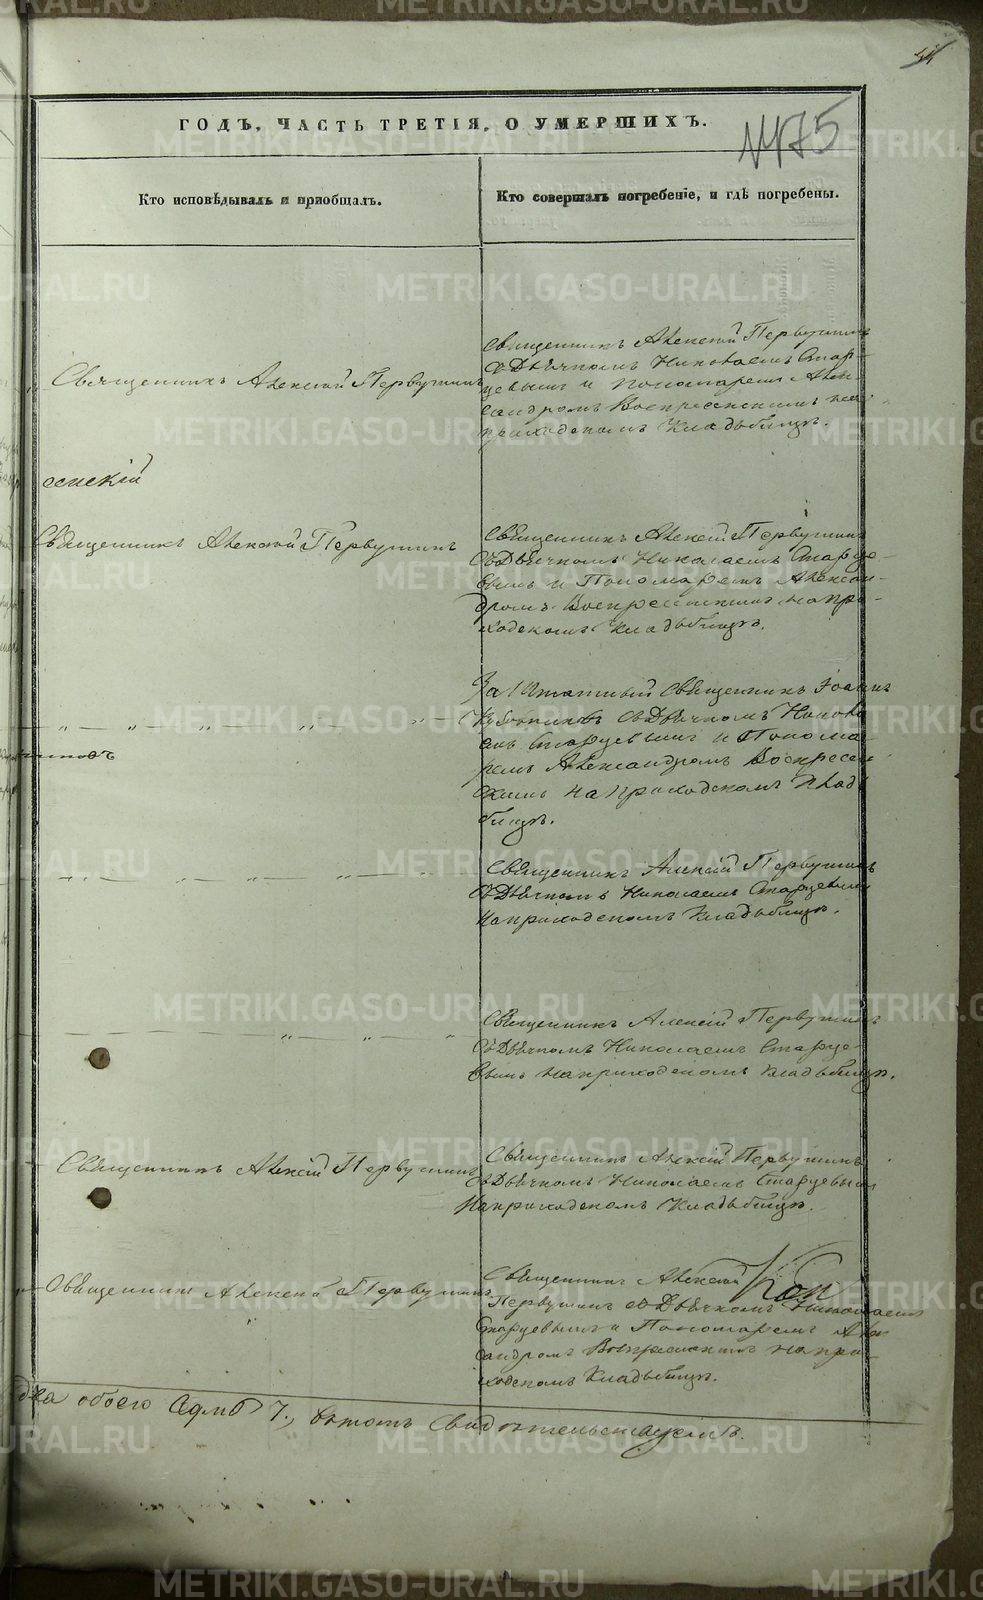 ГОДЪ, ЧАСТЬ ТРЕТІЯ, О УМЕРШИХЪ.
475
Кто исповѣдывалъ и пріобщалъ.
Кто совершалъ погребеніе, и гдѣ погребены.
Священникъ Алексѣй Первушинъ
Священникъ Алексѣй Первушинъ
съ Дьячкомъ Николаемъ Стар-
цевымъ и Пономаремъ Алек-
сандромъ Воскресенскимъ на
приходскомъ Кладбищѣ.
Священникъ Алексѣй Первушинъ
Священникъ Алексѣй Первушинъ
съ Дьячкомъ Николаемъ Старце-
вымъ и Пономаремъ Алексан-
дромъ Воскресенскимъ на при-
ходскомъ Кладбищѣ.
Заштатный Священникъ Іоаннъ
съ Дьячкомъ Никола-
емъ Старцевымъ и Понома-
ремъ Александромъ Воскресен-
скимъ на приходскомъ Клад-
бищѣ.
Священникъ Алексій Первушинъ
съ Дьячкомъ Николаемъ Старцевымъ
на приходскомъ Кладбищѣ.
Священникъ Алексій Первушинъ
съ Дьячкомъ Николаемъ Старце-
вымъ на приходскомъ Кладбищѣ.
Священникъ Алексій Первушинъ
Священникъ Алексій Первушинъ
съ Дьячкомъ Николаемъ Старцевымъ
на приходскомъ Кладбищѣ.
Священникъ Алексѣй Первушинъ
Священникъ Алексѣй
Первушинъ съ Дьячкомъ Николаемъ
Старцевымъ и Пономаремъ Алек-
сандромъ Воскресенскимъ на при-
ходскомъ Кладбищѣ.
обоего 7., въ томъ свидѣтельствуемъ.
METRIKI.GASO-URAL.RU